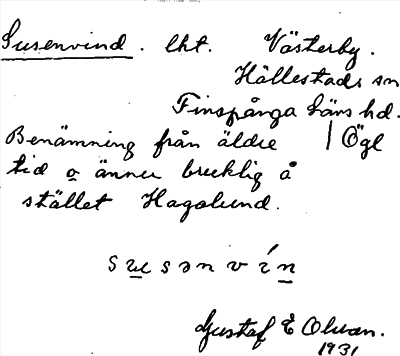 Susenvind. lht. Västerby.
Hällestads sn
Finspånga läns hd.
Benämning från äldre | Ögl
tid o ännu bruklig å
stället Hagalund.
susənvín
Gustaf E Olson.
1931